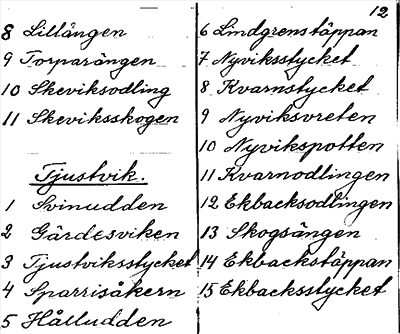 8 Lillängen
9 Torparängen
10 Skeviksodling
11 Skeviksskogen
Tjustvik.
1 Svinudden
2 Gärdesviken
3 Tjustviksstycket
4 Sparrisåkern
5 Hålludden
12
6 Lindgrenstäppan
7 Nyviksstycket
8 Kvarnstycket
9 Nyviksvreten
10 Nyvikspotten
11 Kvarnodlingen
12 Ekbacksodlingen
13 Skogsängen
14 Ekbackstäppan
15 Ekbacksstycket